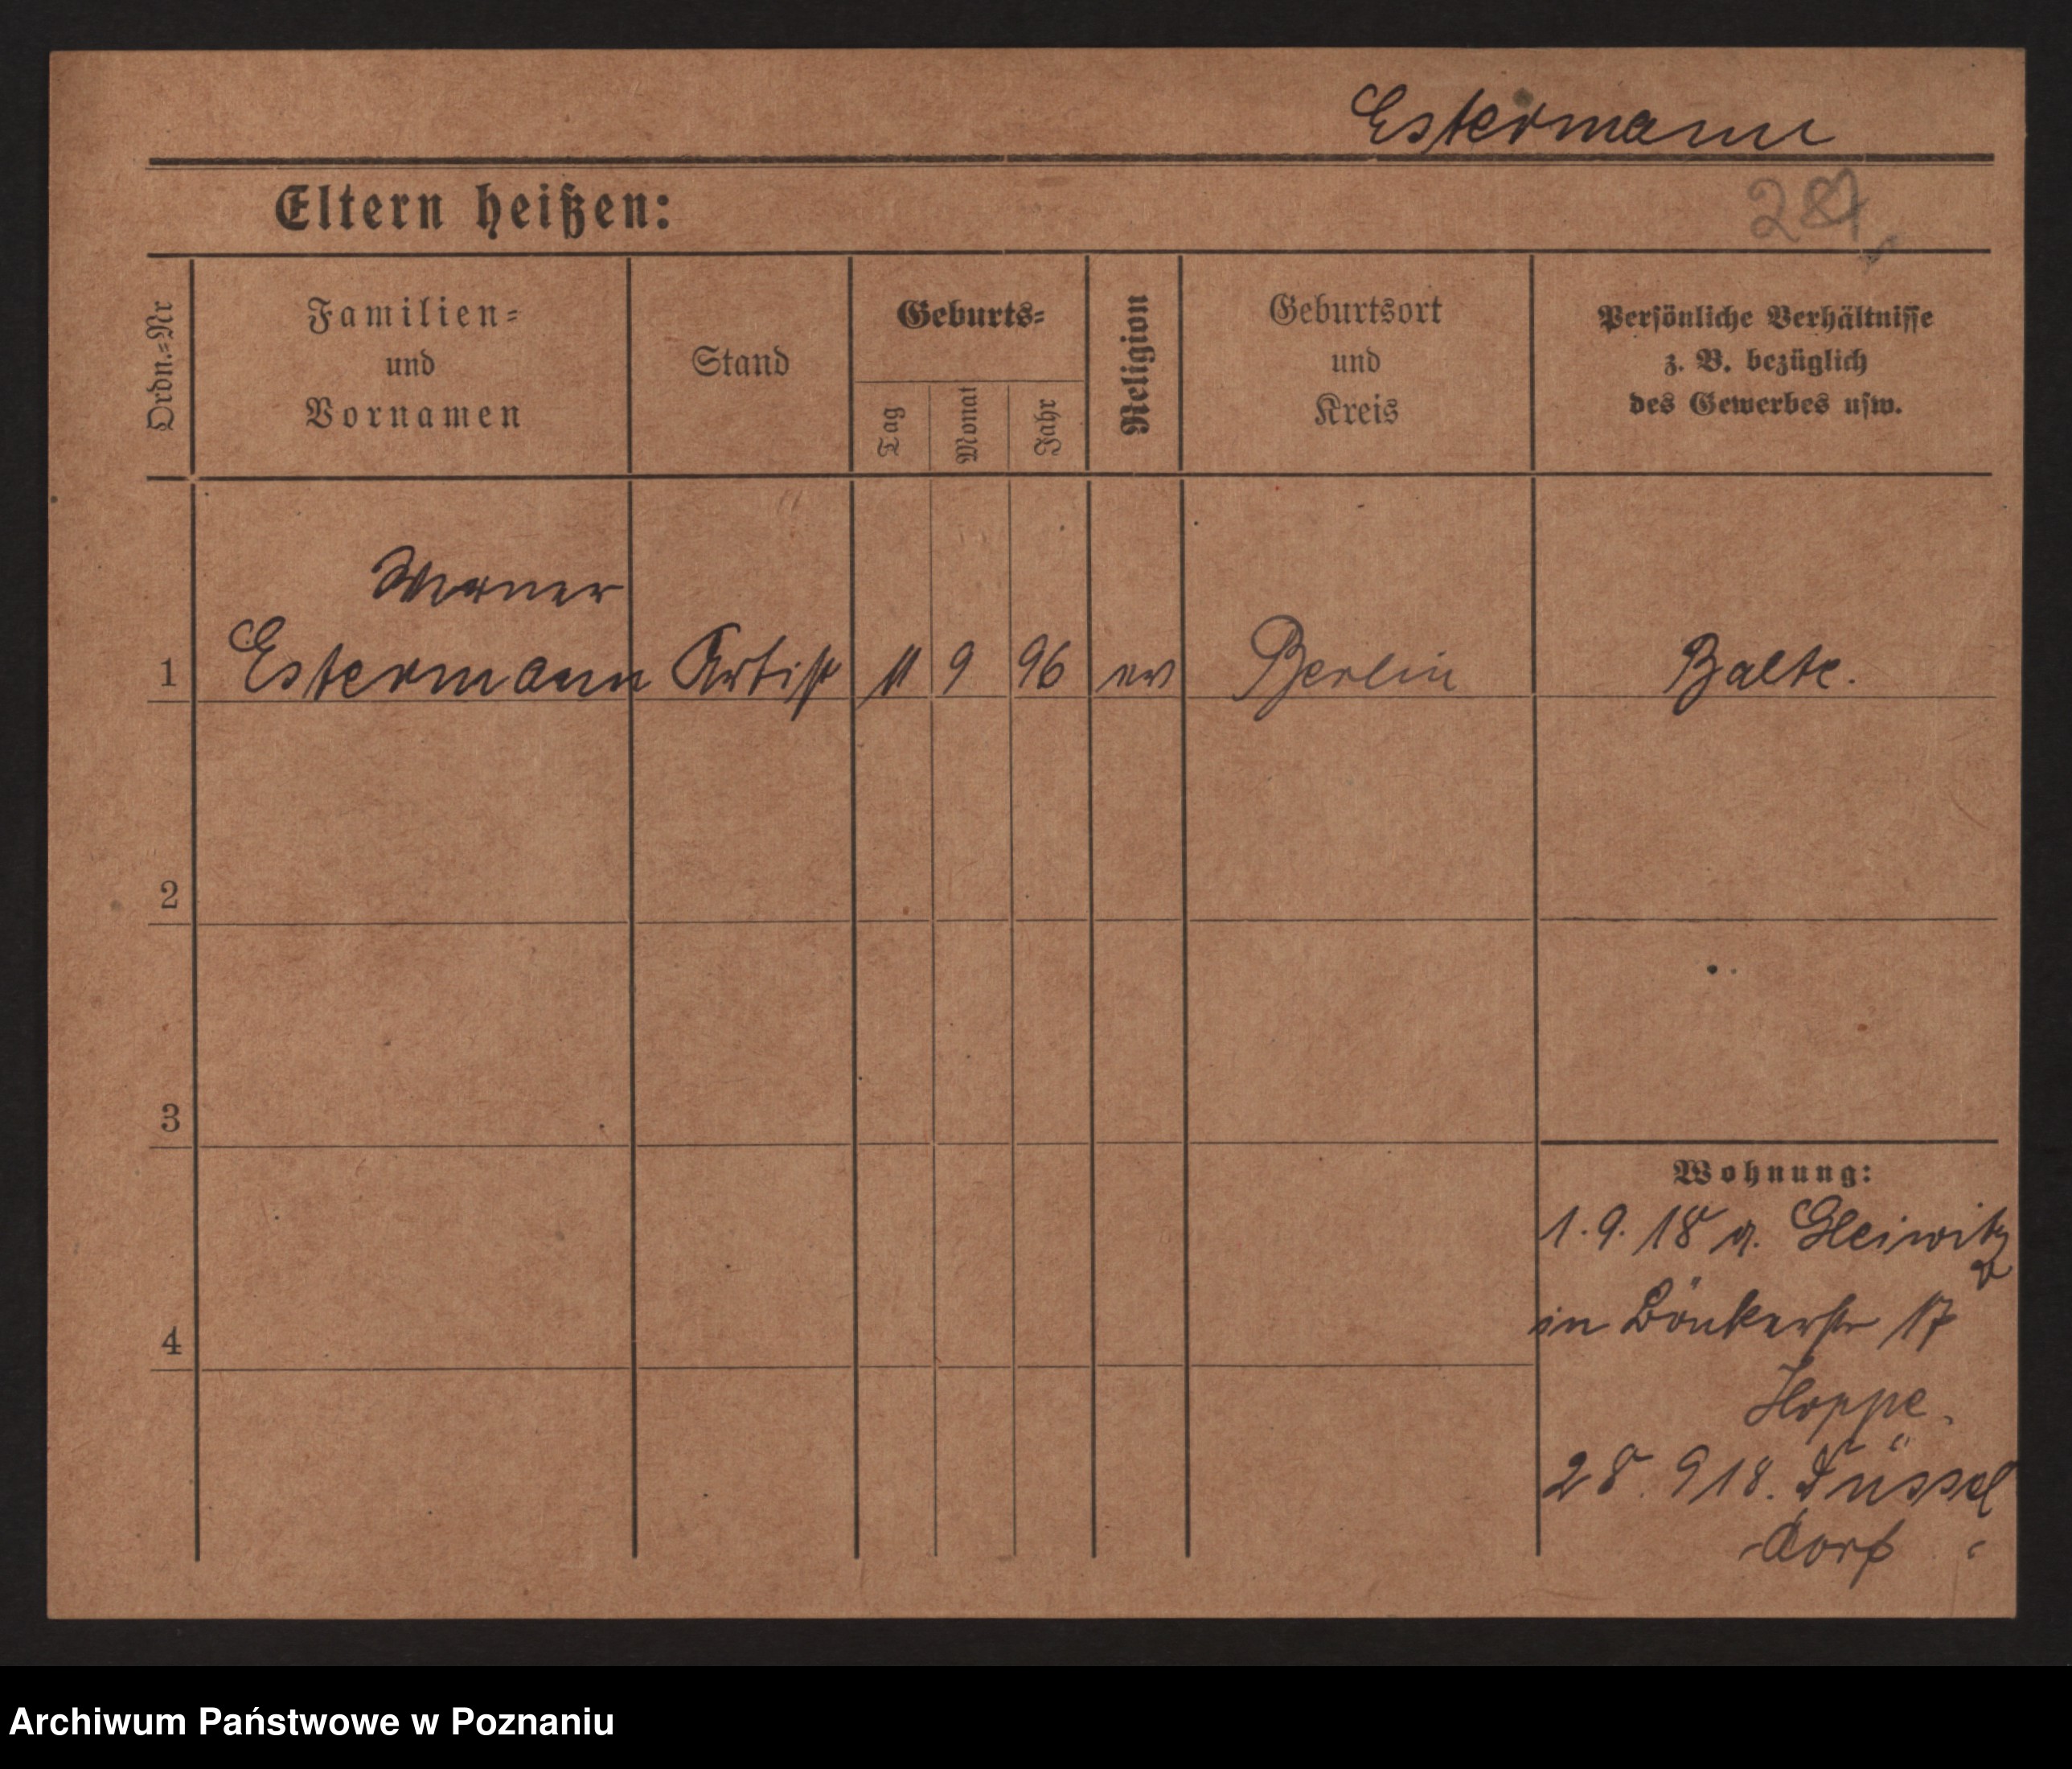 Estermann
Eltern heißen:
Ordn.-Nr
Familien-
und
Vornamen
Stand
Geburts-
Tag
Monat
Jahr
Religion
Geburtsort
und
Kreis
Persönliche Verhältnisse
z. B. bezüglich
des Gewerbes usw.
Werner
1 Estermann Artist 11 9 96 ev Berlin Balte.
2
3
4
Wohnung:
1.9.18 v. Gleiwitz
in Bönkerstr 17
Hoppe.
28. 9 18. Düssel
-dorf
Archiwum Państwowe w Poznaniu